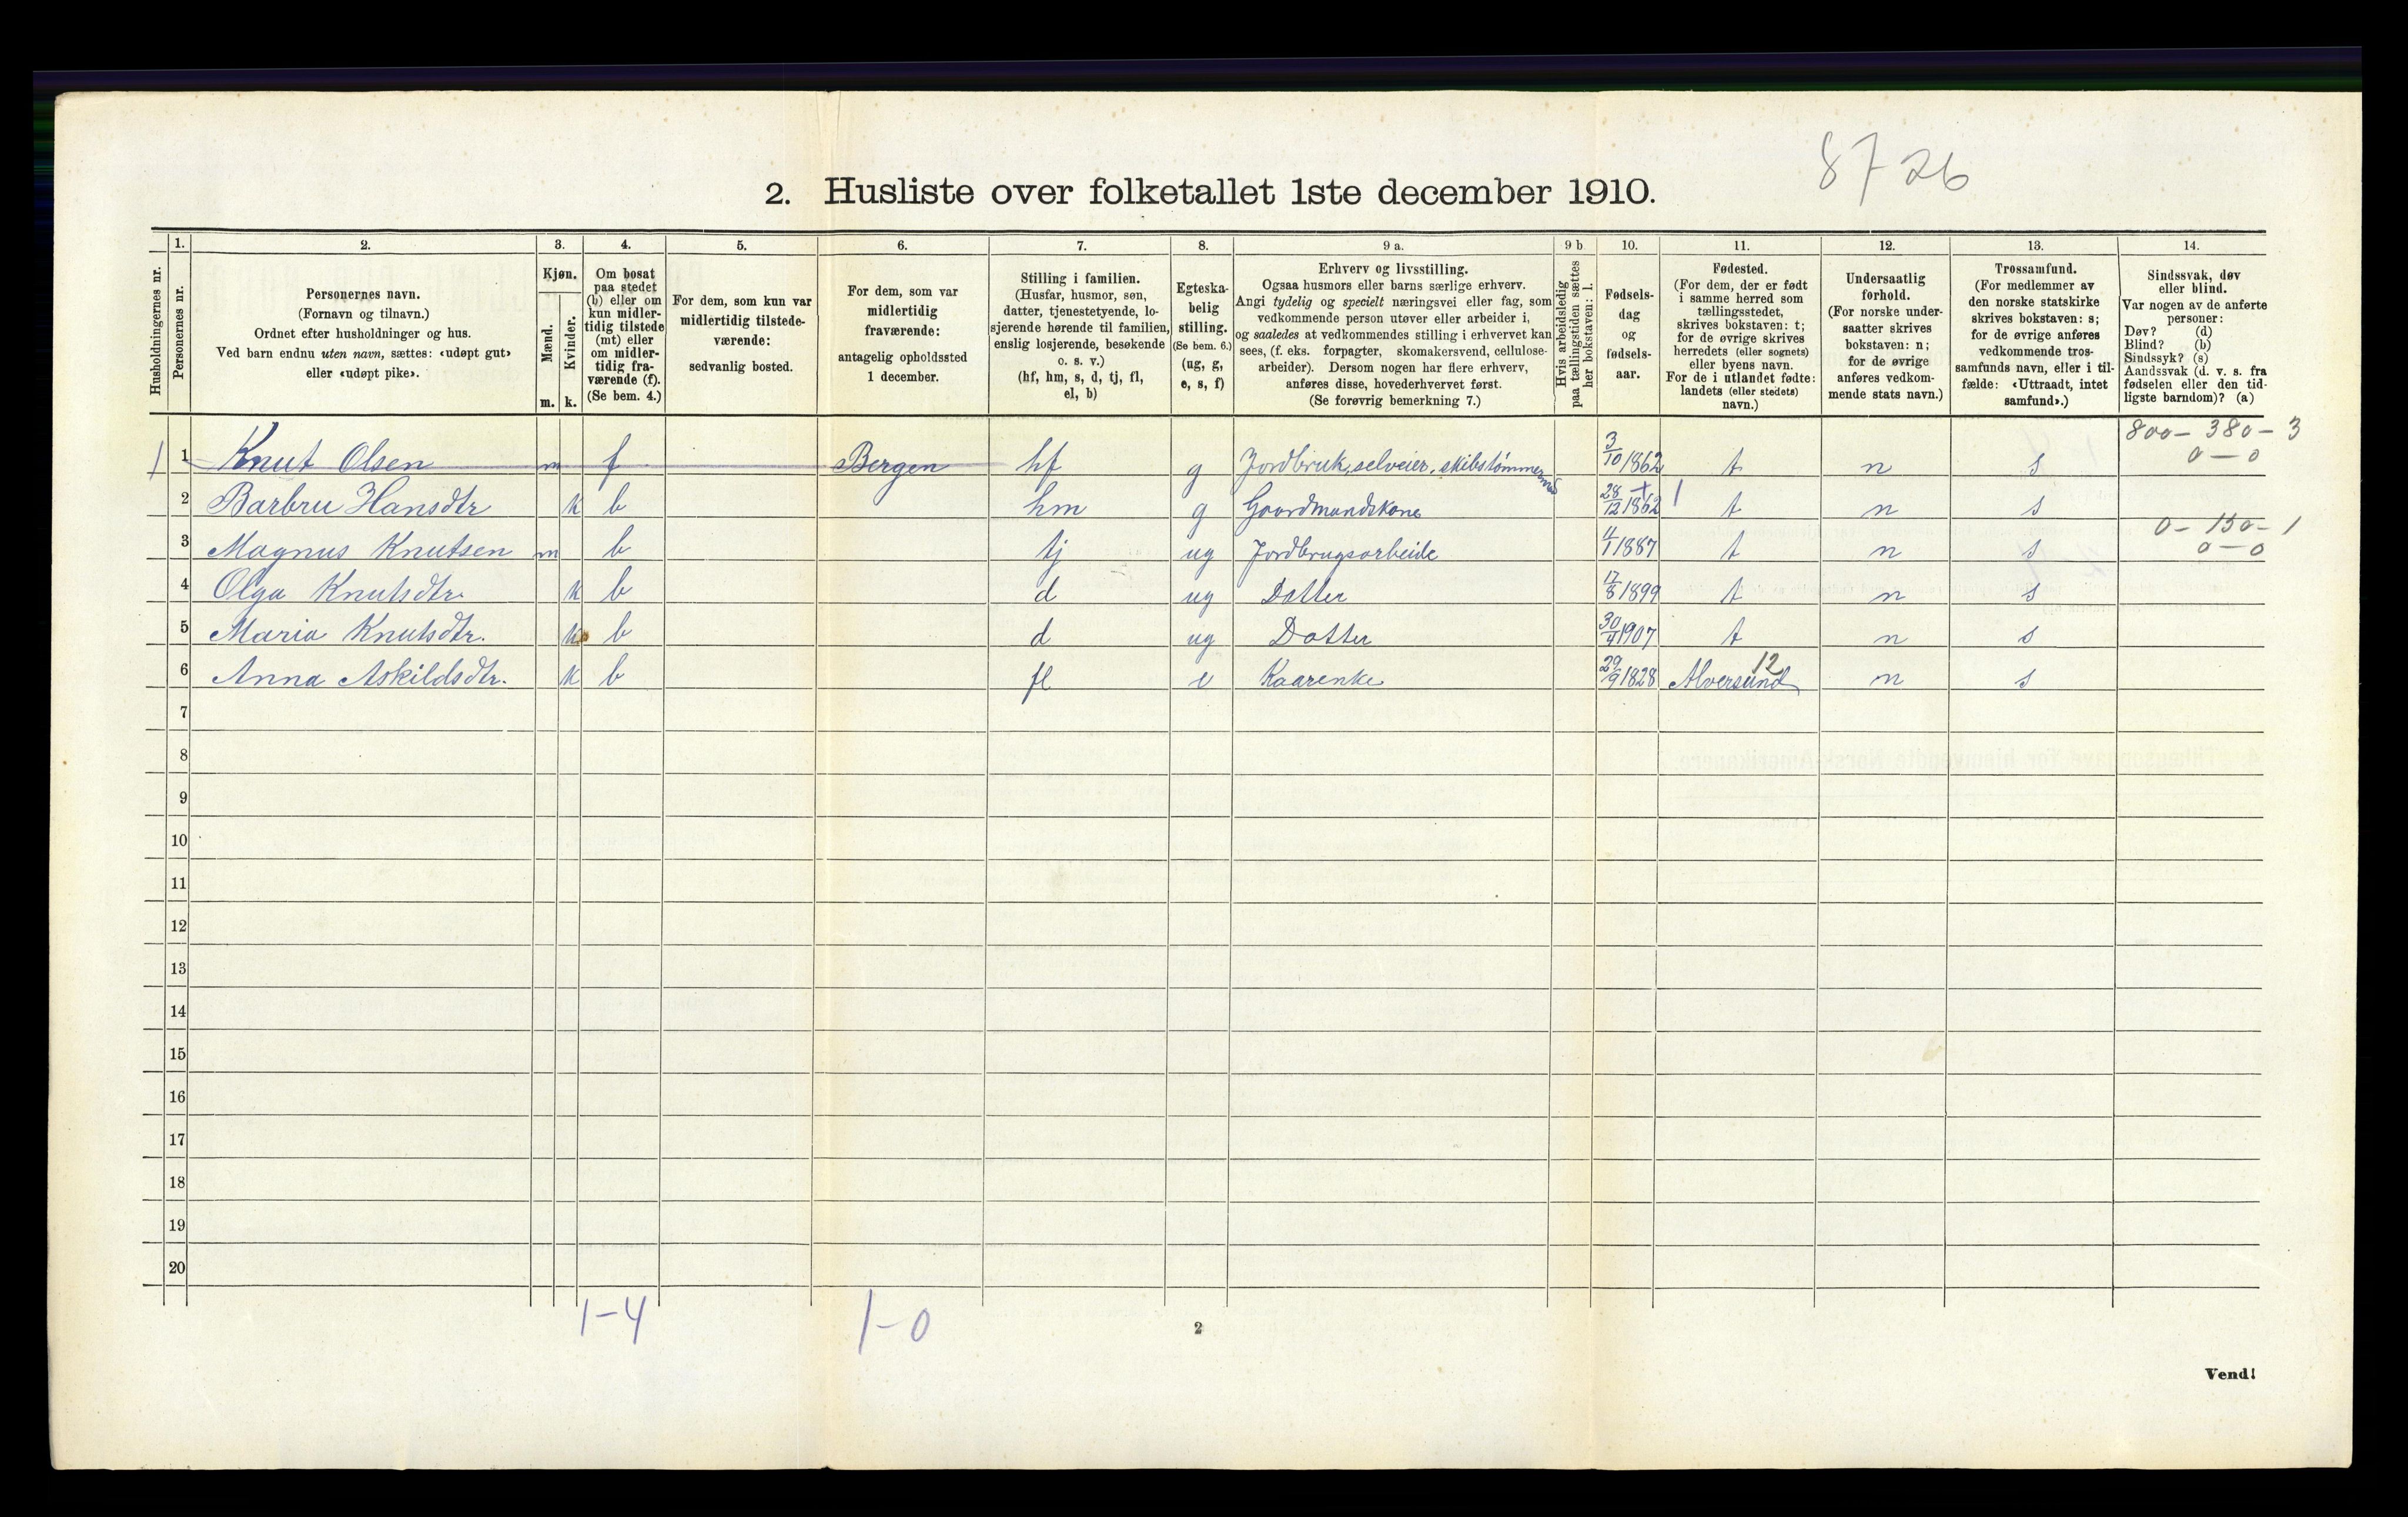 8726
2. Husliste over folketallet 1ste december 1910.
Husholdningernes nr.
1. 2. 3. 4. 5. 6. 7. 8. 9 a. 9 b 10. 11. 12. 13. 14.
Personernes nr.
Personernes navn.
(Fornavn og tilnavn.)
Ordnet efter husholdninger og hus.
Ved barn endnu uten navn, sættes: «udøpt gut»
eller «udøpt pike».
Kjøn.
Mænd.
Kvinder.
m. k.
Om bosat
paa stedet
(b) eller om
kun midler-
tidig tilstede
(mt) eller
om midler-
tidig fra-
værende (f).
(Se bem. 4.)
For dem, som kun var
midlertidig tilstede-
værende:
sedvanlig bosted.
For dem, som var
midlertidig
fraværende:
antagelig opholdssted
1 december.
Stilling i familien.
(Husfar, husmor, søn,
datter, tjenestetyende, lo-
sjerende hørende til familien,
enslig losjerende, besøkende
o. s. v.)
(hf, hm, s, d, tj, fl,
el, b)
Egteska-
belig
stilling.
(Se bem. 6.)
(ug, g,
e, s, f)
Erhverv og livsstilling.
Ogsaa husmors eller barns særlige erhverv.
Angi tydelig og specielt næringsvei eller fag, som
vedkommende person utøver eller arbeider i,
og saaledes at vedkommendes stilling i erhvervet kan
sees, (f. eks. forpagter, skomakersvend, cellulose-
arbeider). Dersom nogen har flere erhverv,
anføres disse, hovederhvervet først.
(Se forøvrig bemerkning 7.)
Hvis arbeidsledig
paa tællingstiden sættes
her bokstaven: l.
Fødsels-
dag
og
fødsels-
aar.
Fødested.
(For dem, der er født
i samme herred som
tællingsstedet,
skrives bokstaven: t;
for de øvrige skrives
herredets (eller sognets)
eller byens navn.
For de i utlandet fødte:
landets (eller stedets)
navn.)
Undersaatlig
forhold.
(For norske under-
saatter skrives
bokstaven: n;
for de øvrige
anføres vedkom-
mende stats navn.)
Trossamfund.
(For medlemmer av
den norske statskirke
skrives bokstaven: s;
for de øvrige anføres
vedkommende tros-
samfunds navn, eller i til-
fælde: «Uttraadt, intet
samfund».)
Sindssvak, døv
eller blind.
Var nogen av de anførte
personer:
Døv? (d)
Blind? (b)
Sindssyk? (s)
Aandssvak (d. v. s. fra
fødselen eller den tid-
ligste barndom)? (a)
800 - 380 - 3
0 - 0
1 1 Knut Olsen m f Bergen hf g Jordbruk, selveier, skibstømmermd 3/10 1862 t n s
2 Barbru Hansdtr k b hm g Gaardmandskone 28/12 1862 t n s
0 - 150 - 1
0 - 0
3 Magnus Knutsen m b tj ug Jordbrugsarbeide 4/1 1887 t n s
4 Olga Knutsdtr. k b d ug Datter 17/8 1899 t n s
5 Maria Knutsdtr. k b d ug Datter 30/4 1907 t n s
12
6 Anna Askildsdtr. k b fl e Kaarenke 29/9 1828 Alversund n s
7
8
9
10
11
12
13
14
15
16
17
18
19
20
1-4 1-0
2
Vend!